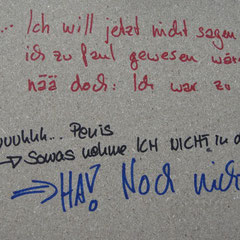 ... Ich will jetzt nicht sagen
ich zu faul gewesen wär
nää doch: Ich war zu
uuuhhh... Penis
→ Sowas nehme ICH NICHT! in d
⇒ HA! Noch nich